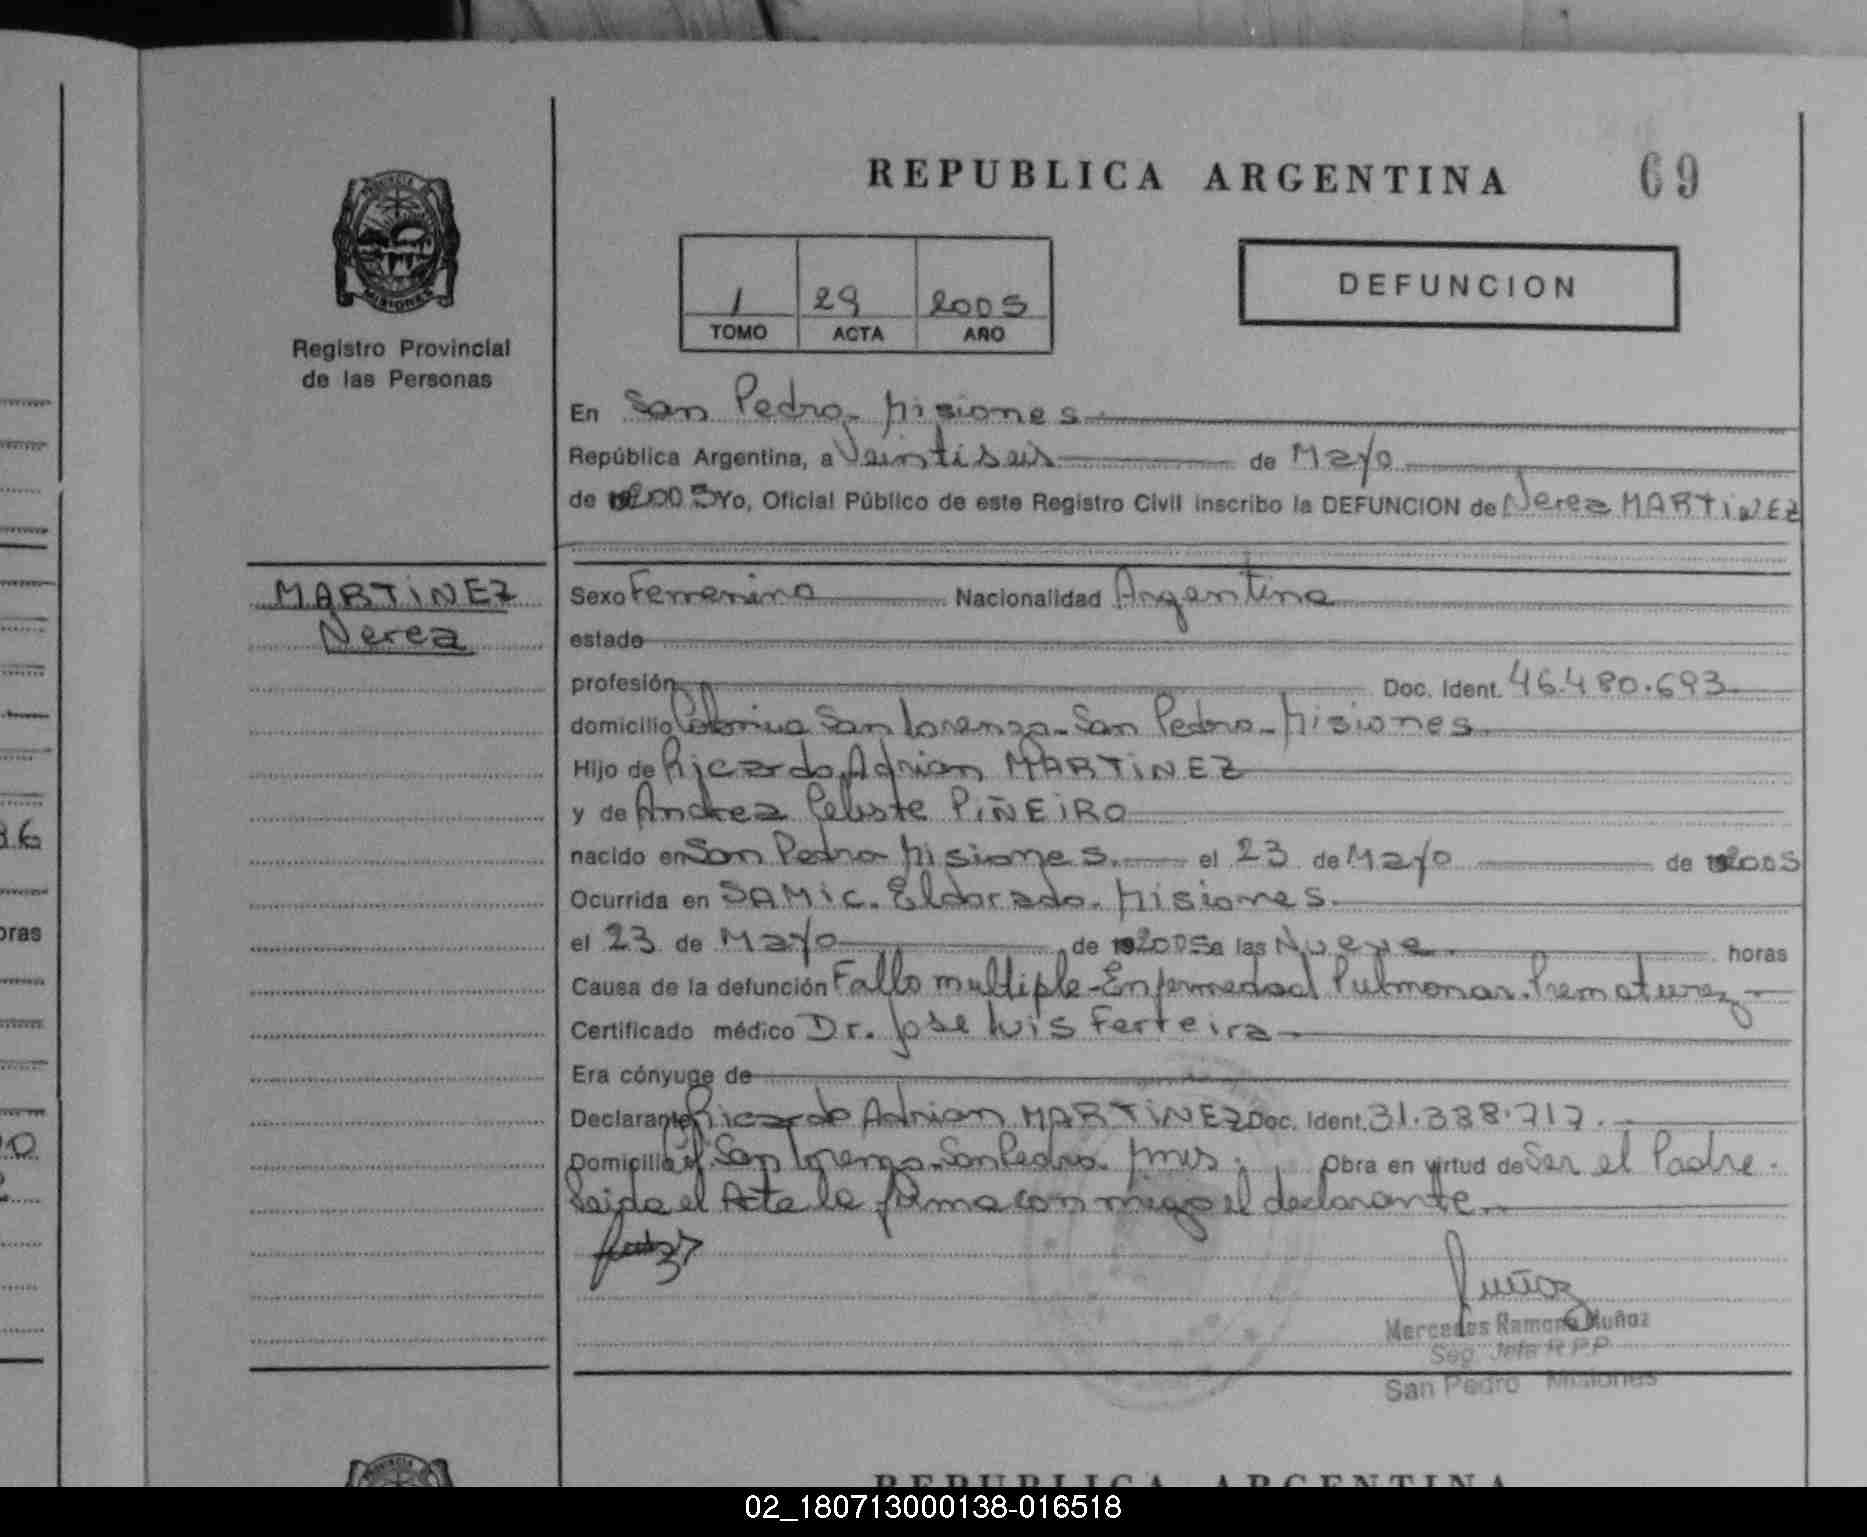 REPUBLICA ARGENTINA 69
PROVINCIA DE
MISIONES
Registro Provincial
de las Personas
1 29 2005
TOMO ACTA AÑO
DEFUNCION
En San Pedro - Misiones
República Argentina, a Veintiseis de Mayo
de 2005 Yo, Oficial Público de este Registro Civil inscribo la DEFUNCION de Nerea MARTiNEZ
MARTiNEZ
Nerea
Sexo Femenino Nacionalidad Argentina
estado
profesión Doc. Ident. 46.480.693
domicilio Colonia San Lorenzo - San Pedro - Misiones
Hijo de Ricardo Adrian MARTiNEZ
y de Andrea Celeste PiÑEiRO
nacido en San Pedro Misiones. el 23 de Mayo de 2005
Ocurrida en SAMiC. Eldorado. Misiones.
el 23 de Mayo de 2005 a las Nueve horas
Causa de la defunción Fallo multiple - Enfermedad Pulmonar. Prematurez
Certificado médico Dr. Jose Luis Ferreira
Era cónyuge de
Declarante Ricardo Adrian MARTiNEZ Doc. Ident. 31.338.717.
Domicilio San Lorenzo - San Pedro. Mnes. Obra en virtud de Ser el Padre.
Leida el Acta la firma con migo el declarante.
Muñoz
Mercedes Ramona Muñoz
Seg. Jefa R.P.P
San Pedro Misiones
REPUBLICA ARGENTINA
36
oras
02_180713000138-016518